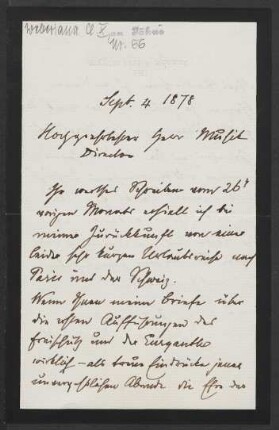 Weberiana Cl. X,
Nr. 56
Sept. 4 1878
Hochgeehrtester Herr Musik
Director
Ihr werthes Schreiben vom 26t
vorigen Monats erhielt ich bei
meiner Zurückkunft von einer
leider sehr kurzen Urlaubsreise nach
Paris und der Schweiz.
Wenn Ihnen meine Briefe über
die ersten Aufführungen des
Freischütz und der Euryanthe
wirklich – als treue Eindrücke jener
unvergeßlichen Abende die Ehre der